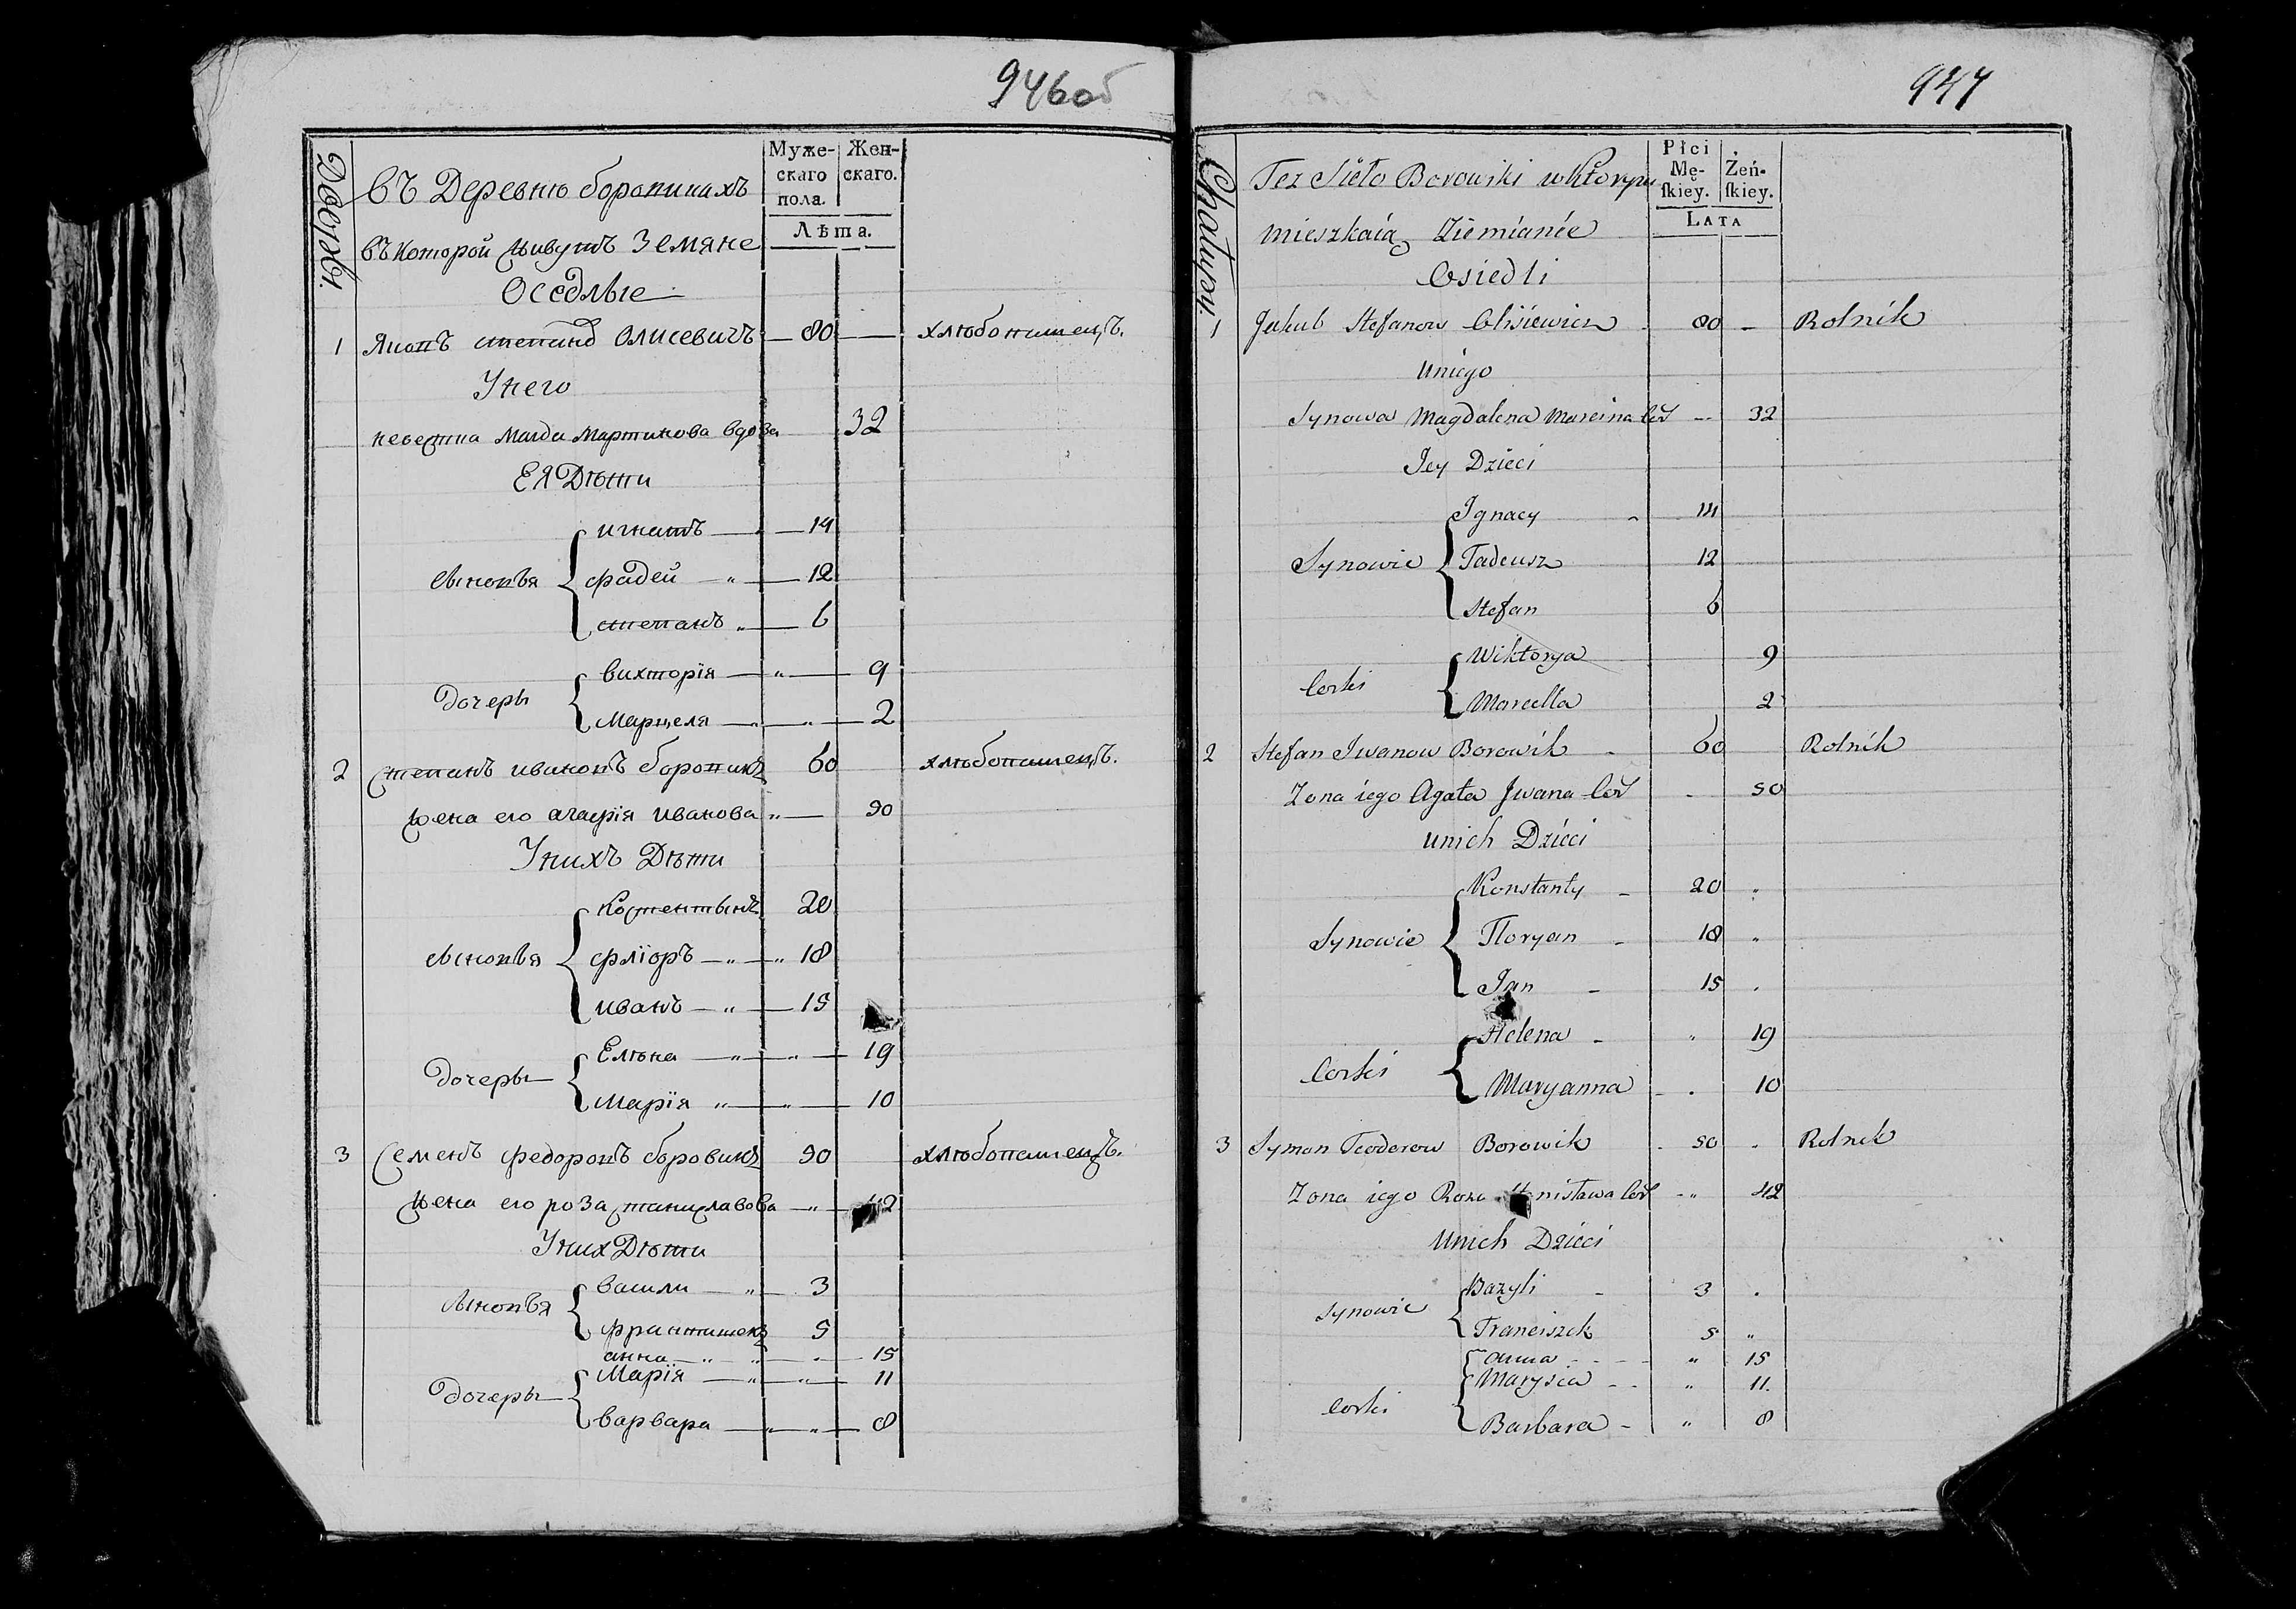 946об
Дворы.
въ Деревню боровикахъ
Муже-
скаго
пола.
Жен-
скаго.
Лѣта.
въ которой живутъ Земяне
Оседлые
1 Яковъ степановъ Олисевичъ 80 хлѣбопашецъ.
Унего
невестка Магда Мартинова вдова 32
ЕЯ Дѣти
сыновья
игнатъ 14
фадей 12
степанъ 6
дочеры
викторія 9
Марцеля 2
2 степанъ ивановъ боровикъ 60 хлѣбопашецъ.
жена его агафія иванова 50
Унихъ Дѣти
сыновья
костентынъ 20
фліоръ 18
иванъ 15
дочеры
Елѣна 19
Марія 10
3 семенъ федоровъ боровикъ 50 хлѣбопашецъ.
жена его роза станиславова 42
Уних Дѣти
сыновья
васили 3
франтишекъ 5
анна 15
дочеры
Марія 11
варвара 8
947
Chałupy.
Tez Sieło Borowiki wktorym
Płci
Mę-
ſkiey.
Żeń-
ſkiey.
LATA
mieszkaią Ziemianie
Osiedli
1 Jakub Stefanow Olisiewicz 80 Rolnik
uniego
Synowa Magdalena Marcina Cor 32
Jey Dzieci
Synowie
Ignacy 14
Tadeusz 12
Stefan 6
Corki
Wiktorya 9
Marcella 2
2 Stefan Iwanow Borowik 60 Rolnik
Zona iego Agata Iwana Cor 50
unich Dzieci
Synowie
Konstanty 20
Floryan 18
Jan 15
Corki
Helena 19
Maryanna 10
3 Symon Teodorow Borowik 50 Rolnik
Zona iego Roza Stanisława Cor 42
Unich Dzieci
synowie
Bazyli 3
Franciszek 5
Anna 15
corki
Marysia 11.
Barbara 8